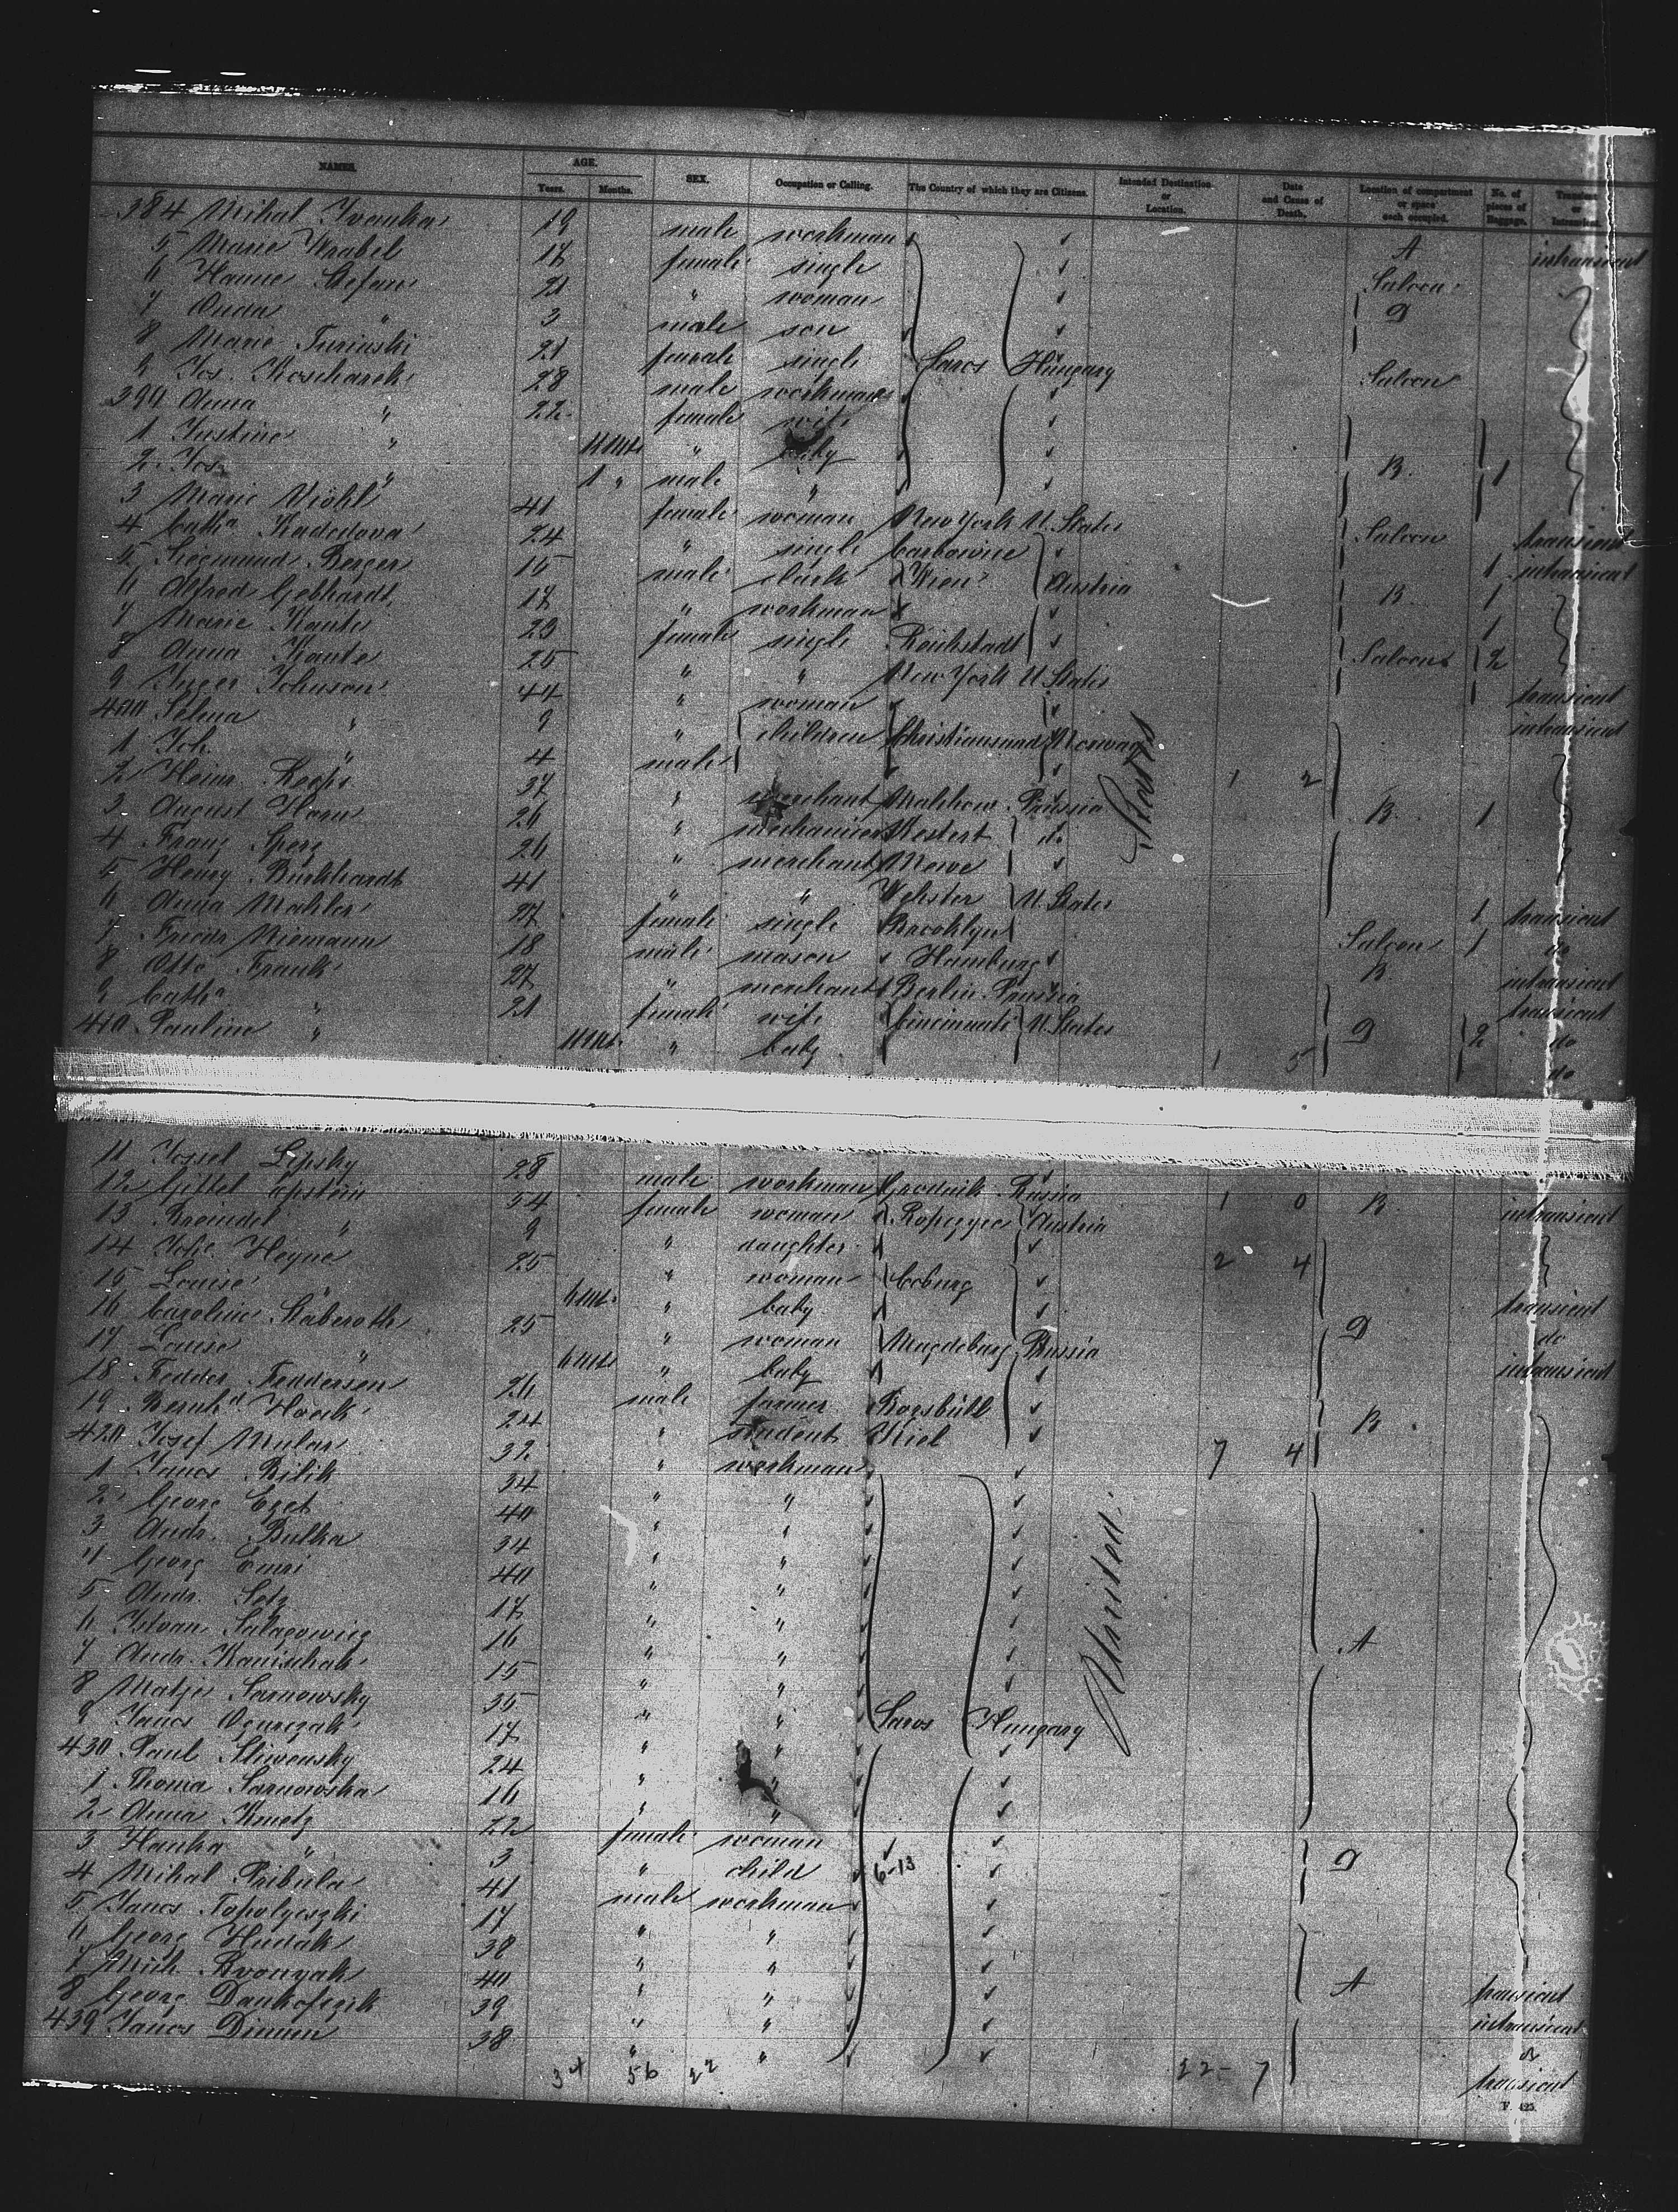 NAMES. AGE. SEX. Occupation or Calling. The Country of which they are Citizens. Intended Destination or Location. Date and Cause of Death. Location of compartment or space each occupied. No. of pieces of Baggage.
Years. Months.
384 Mihal Ivanka 19 male workman A intransient
5 Marie Wrabel 17 female single Saloon
6 Hanne Stefan 21 " woman D
7 Anda " 3 male son
8 Marie Turinski 21 female single Saros Hungary Saloon
9 Jos. Koscharek 28 male workman
390 Anna " 22 female wife
1 Justine " 11 Mts " baby B. 1
2 Jos. " 1 " male "
3 Marie Viohl 41 female woman New York U. States Saloon transient
4 Cathn Kadedova 24 " single 1 intransient
5 Siegmund Berger 15 male clerk Wien Austria B. 1
6 Alfred Gebhardt 17 " workman 1
7 Marie Kante 23 female single Reichstadt Saloon 2
8 Anna Kante 25 " " New York U. States transient
9 Inger Johnson 44 " woman intransient
400 Selma " 9 " children Christiansund Norway
1 Joh. " 4 male
2 Heinr. Koops 37 " merchant Malchow Prussia 1 2 B. 1
3 August Horn 26 " mechanic Kestert do
4 Franz Gperz 26 " merchant Mewe
5 Henry Burkhardt 41 " " Webster U. States 1 transient
6 Anna Mahler 27 female single Brooklyn Saloon 1 do
7 Friedr Niemann 18 male mason Hamburg B. intransient
8 Otto Frank 27 " merchant Berlin Prussia transient
9 Cathn " 21 female wife Cincinnati U. States D 2 do
410 Pauline " 11 Mts. " baby 1 5 do
11 Jossel Lipsky 28 male workman Grodnik Russia 1 0 B intransient
12 Gittel Epstein 54 female woman Ropczyce Austria
13 Breindel " 9 " daughter 2 4
14 Johe. Heyne 25 " woman Coburg transient
15 Louise " 6 Mts. " baby D do
16 Caroline Staberoth 25 " woman Magdeburg Prussia intransient
17 Louise " 6 Mts " baby
18 Fedder Feddersen 26 male farmer Bogsbüll B.
19 Bernhd Hoeck 24 " student Kiel 7 4
420 Josef Mular 32 " workman
1 Janos Bilik 34 " "
2 Georg Ezet 40 " "
3 Andr. Bulka 34 " "
4 Georg Emri 40 " "
5 Andr. Sotz 17 " "
6 Istvan Salagowicz 16 " " A
7 Andr. Kanischak 15 " "
8 Matje Sarnowsky 35 " " Saros Hungary
9 Janos Ogurczak 17 " "
430 Paul Sliwensky 24 " "
1 Thoma Sarnowska 16 " "
2 Anna Kmetz 22 female woman
3 Hanka " 3 " child 6-13 D
4 Mihal Pribula 41 male workman
5 Janos Topolyeszki 17 " "
6 Georg Hudak 38 " "
7 Mich. Bronyak 40 " " A transient
8 Georg Dankofczik 39 " " intransient
439 Janos Dimun 38 " " transient
34 56 22 22- 7